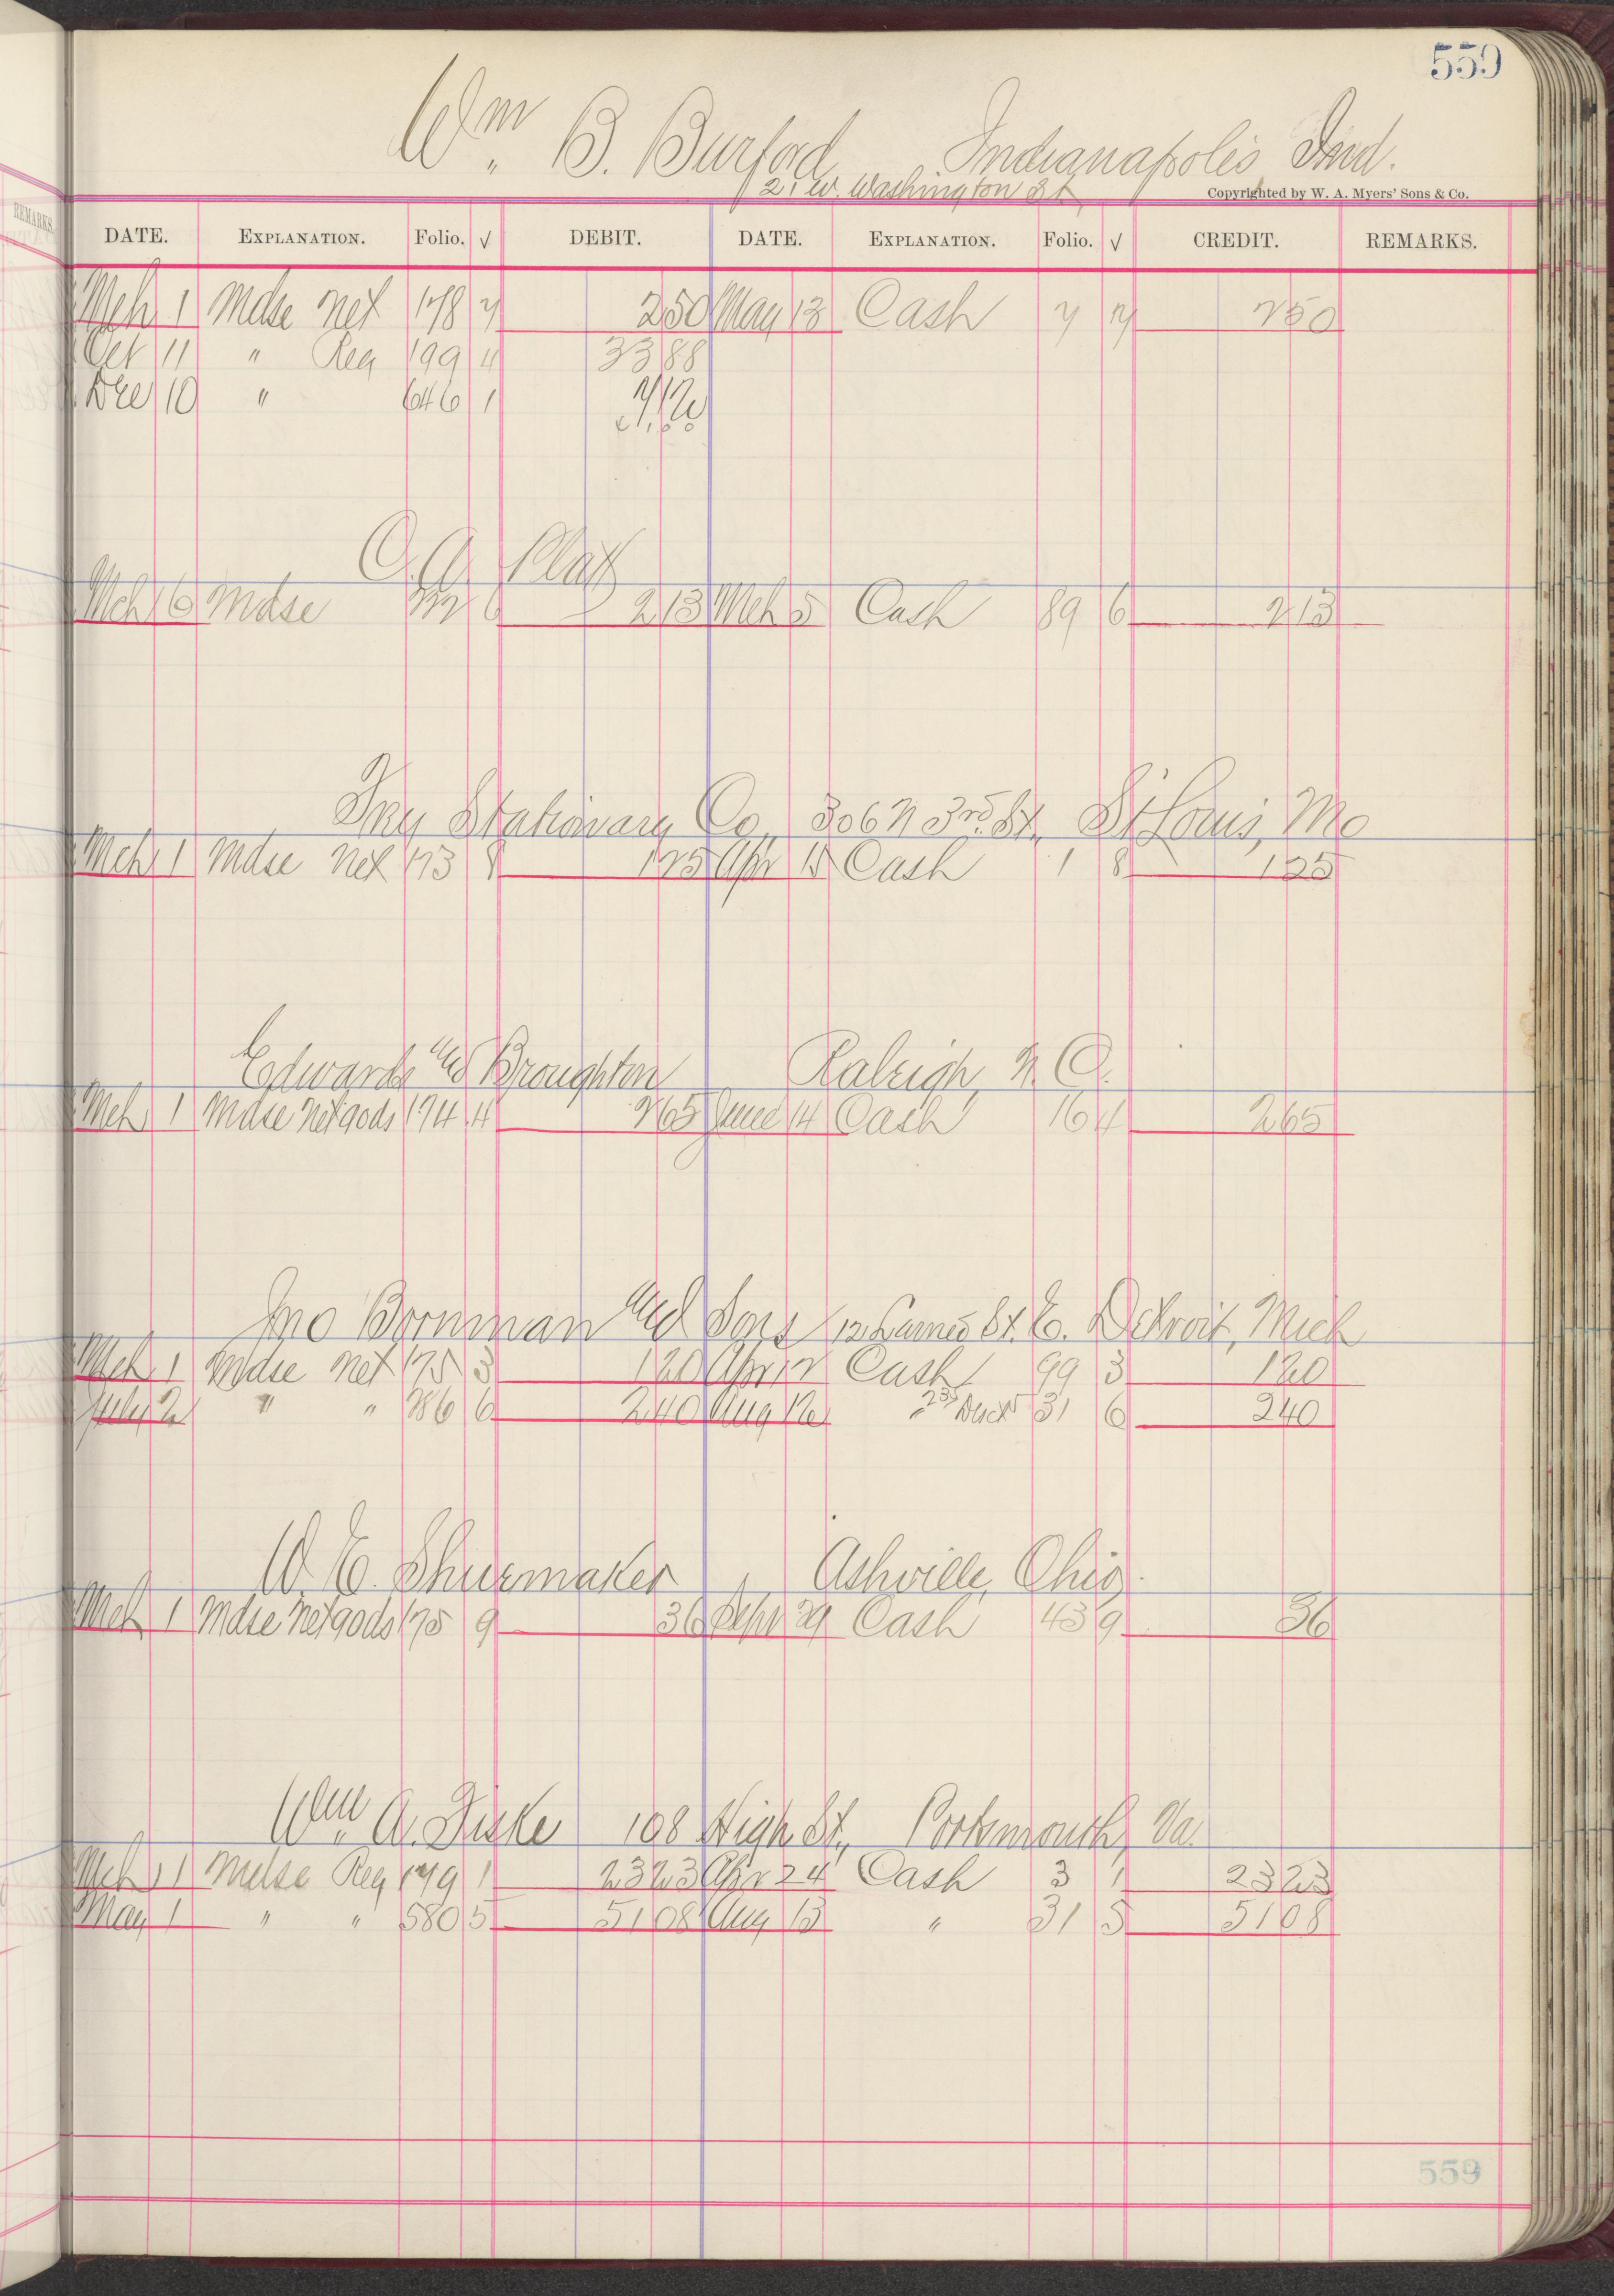 559
Wm. B. Burford, Indianapolis Ind.
21 W. Washington St
Copyrighted by W. A. Myers' Sons & Co.
REMARKS.
DATE. EXPLANATION. Folio. √ DEBIT. DATE. EXPLANATION. Folio. √ CREDIT. REMARKS.
Mch 1 Mdse Net 178 7 2 50 May 13 Cash 7 7 2 50
Oct 11 " Reg 199 4 33 88
Dec 10 " 646 1
C. A. Platt
Mch 6 Mdse 6 2 13 Mch 5 Cash 89 6 2 13
Stationary Co, 306 N 3rd. St., St Louis, Mo
Mch 1 Mdse Net 173 8 1 25 Apr 15 Cash 1 8 1 25
Edwards and Broughton Raleigh, N. C.
Mch 1 Mdse Net gods 174 4 2 65 June 14 Cash 16 4 2 65
Jno Bornman and Sons 12 Larned St. E. Detroit, Mich
Mch 1 Mdse Net 175 3 1 20 Apr 12 Cash 99 3 1 20
July 2 " " 286 6 2 40 Aug 12 " 31 6 2 40
W. E. Shuemaker Ashville, Ohio.
Mch 1 Mdse Net gods 175 9 36 Sept 29 Cash 43 9 36
Wm. A. Fiske 108 High St., Portsmouth, Va.
Mch 1 Mdse Reg 179 1 23 23 Apr 24 Cash 3 1 23 23
May 1 " " 580 5 51 08 Aug 13 " 31 5 51 08
559